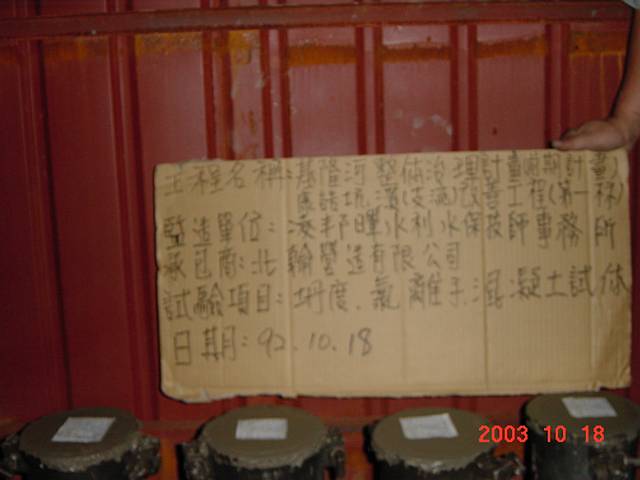 工程名稱:基隆河整体治理計畫(前期計畫)
瑪鋉坑溪(支流)改善工程(第一標)
監造單位:凌邦暉水利水保技師事務所
承包商:北翰營造有限公司
試驗項目:坍度.氯離子.混凝土試体
日期:92.10.18
2003 10 18